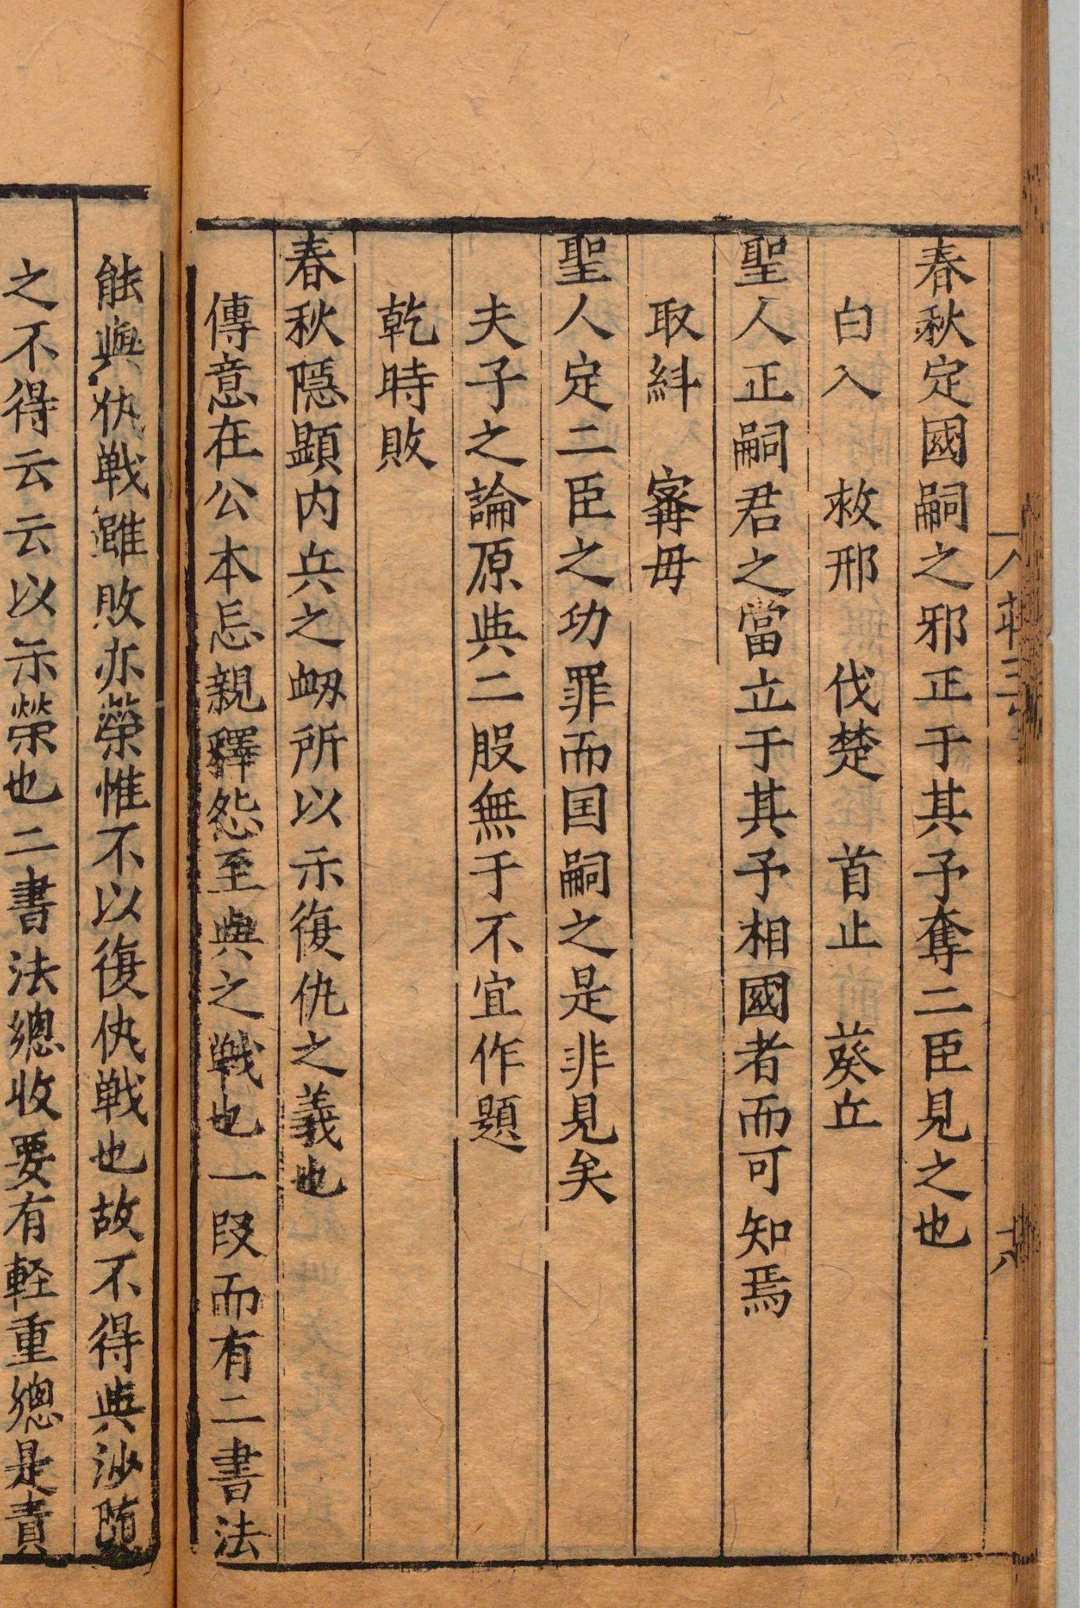 春秋定國嗣之邪正于其予奪二臣見之也
白入 救邢 伐楚 首止 葵丘
聖人正嗣君之當立于其予相國者而可知焉
取糾 寗毋
聖人定二臣之功罪而国嗣之是非見矣
夫子之論原與二股無于不宜作題
乾時敗
春秋隱顯内兵之衂所以示復仇之義也
傳意在公本忌親釋怨至與之戰也一段而有二書法
能與仇戰雖敗亦榮惟不以復仇戰也故不得與沙隨
之不得云云以示榮也二書法總收要有軽重總是責